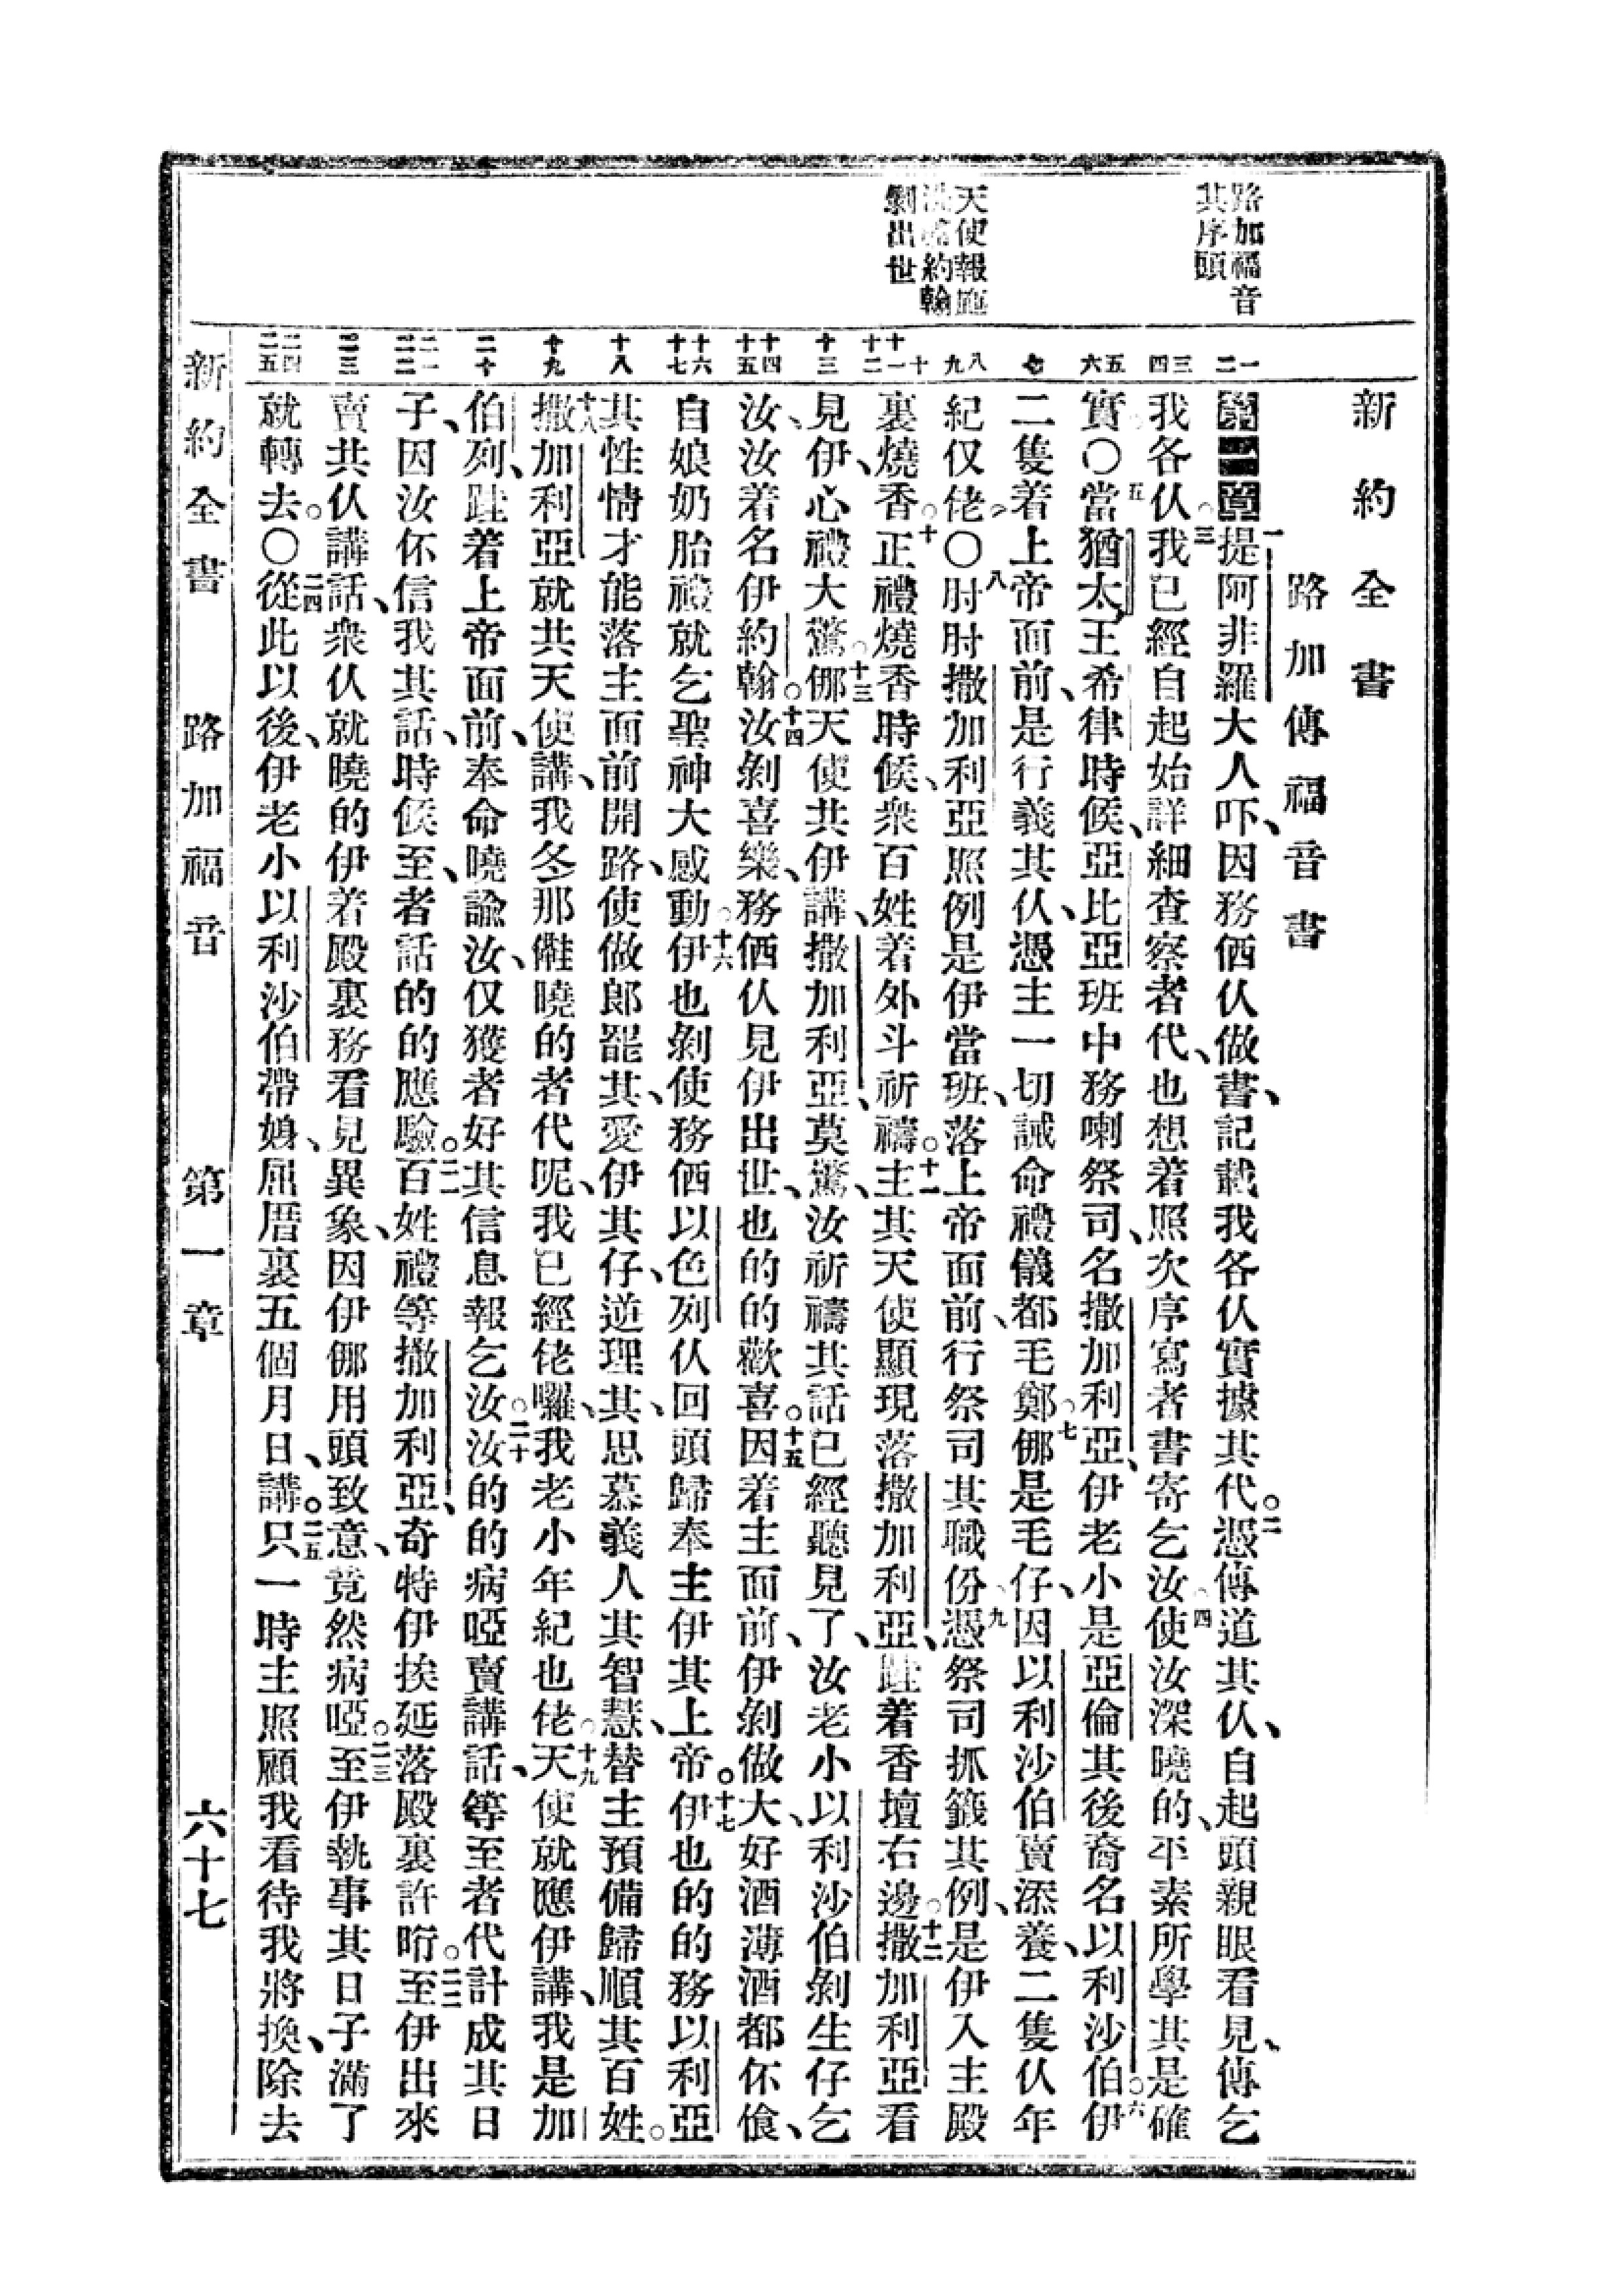 新約全書
路加傳福音書
路加福音
其序頭
天使報
約翰
剝出世
第一章 一提阿非羅大人吓、因務㑚仈做書、記載我各仈實據其代。二憑傳道其仈、自起頭親眼看見、傳乞
我各仈。三我已經自起始詳細查察者代、也想着照次序寫者書寄乞汝、四使汝深曉的、平素所學其是確
實〇五當猶太王希律時候、亞比亞班中務喇祭司、名撒加利亞、伊老小是亞倫其後裔名以利沙伯。六伊
二隻着上帝面前、是行義其仈、憑主一切誡命禮儀、都毛鄭。七㑚是毛仔、因以利沙伯賣添養、二隻仈年
紀仅佬〇八肘肘撒加利亞照例是伊當班、落上帝面前、行祭司其職份、九憑祭司抓籤其例、是伊入主殿
裏、燒香。十正禮燒香時候、衆百姓着外斗祈禱。十一主其天使顯現落撒加利亞、跬着香壇右邊。十二撒加利亞看
見伊、心禮大驚。十三㑚天使共伊講、撒加利亞、莫驚、汝祈禱其話、已經聽見了、汝老小以利沙伯剝生仔乞
汝、汝着名伊約翰。十四汝剝喜樂、務㑚仈見伊出世、也的的歡喜。十五因着主面前、伊剝做大、好酒薄酒都伓飡、
自娘奶胎禮就乞聖神大感動。十六伊也剝使務㑚以色列仈回頭歸奉主伊其上帝。十七伊也的的務以利亞
其性情才能落主面前開路、使做郎罷其、愛伊其仔、逆理其、思慕義人其智慧、替主預備歸順其百姓。
十八撒加利亞就共天使講、我冬那儺曉的者代呢、我已經佬囉、我老小年紀也佬。十九天使就應伊講、我是加
伯列、跬着上帝面前、奉命曉諭汝、仅獲者好其信息報乞汝。二十汝的的病啞賣講話、等至者代計成其日
子、因汝伓信我其話、時候至、者話的的應驗。二一百姓禮等撒加利亞、奇特伊挨延落殿裏許𣇈。二二至伊出來
賣共仈講話、衆仈就曉的伊着殿裏務看見異象、因伊㑚用頭致意、竟然病啞。二三至伊執事其日子滿了
就轉去。〇二四從此以後、伊老小以利沙伯帶㛪、屈厝裏五個月日、講。二五只一時主照顧我看待我將換、除去
一 二 三 四 五 六 七 八 九 十 十一 十二 十三 十四 十五 十六 十七 十八 十九 二十 二一 二二 二三 二四 二五
新約全書 路加福音 第一章 六十七